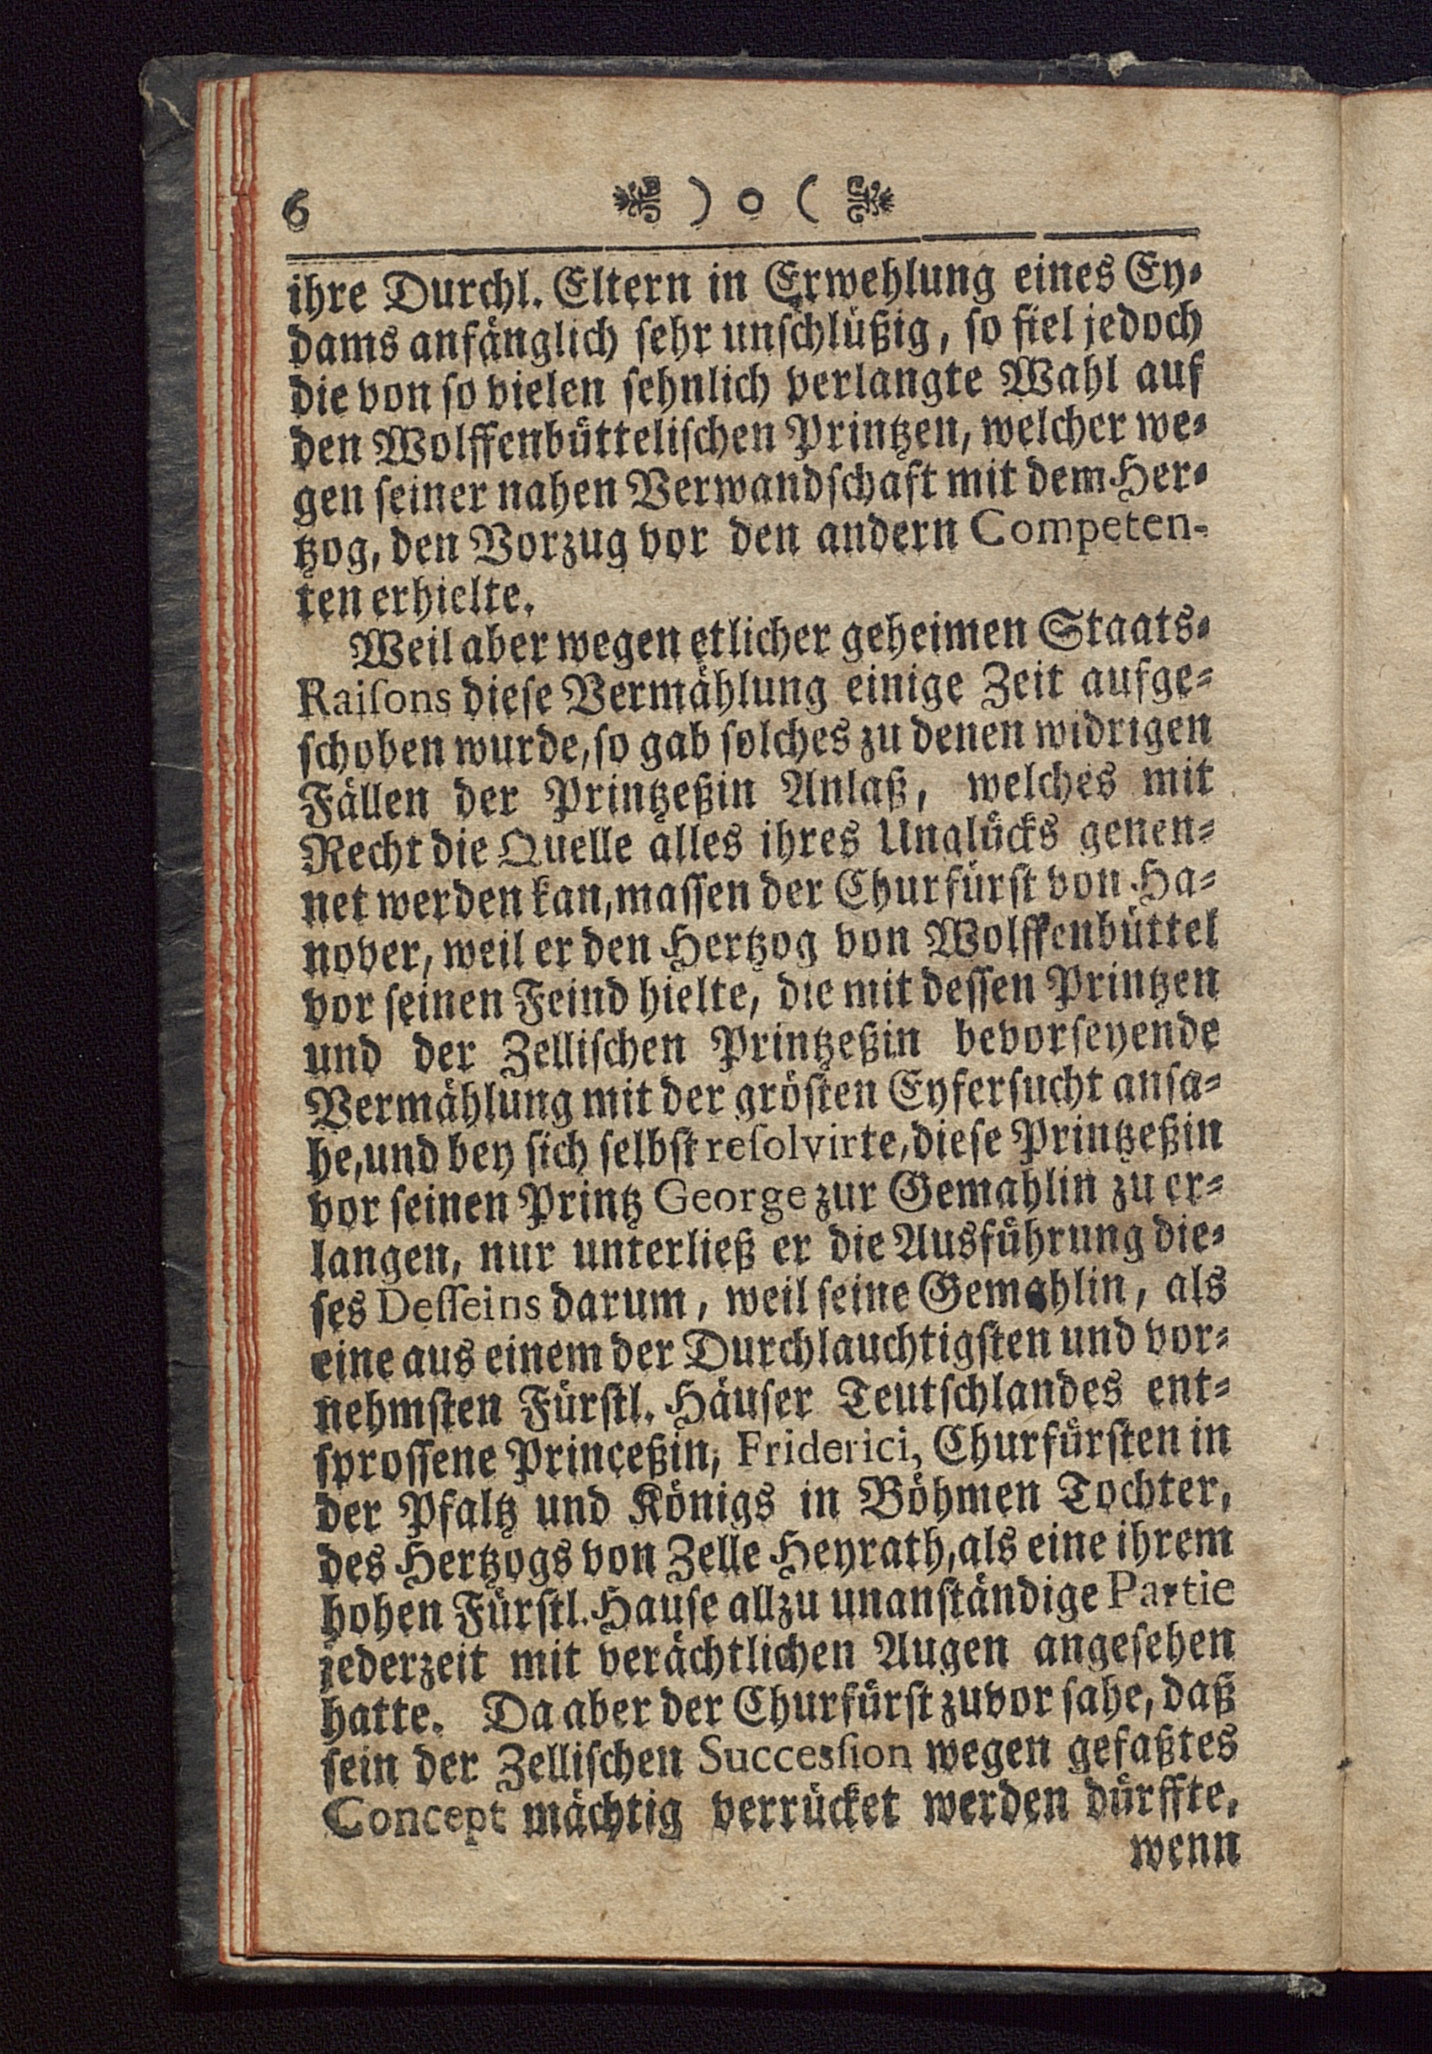 6 ) o (
ihre Durchl. Eltern in Erwehlung eines Ey-
dams anfänglich sehr unschlüßig, so fiel jedoch
die von so vielen sehnlich verlangte Wahl auf
den Wolffenbüttelischen Printzen, welcher we-
gen seiner nahen Verwandschaft mit dem Her-
tzog, den Vorzug vor den andern Competen-
ten erhielte.
Weil aber wegen etlicher geheimen Staats-
Raisons diese Vermählung einige Zeit aufge-
schoben wurde, so gab solches zu denen widrigen
Fällen der Printzeßin Anlaß, welches mit
Recht die Quelle alles ihres Unglücks genen-
net werden kan, massen der Churfürst von Ha-
nover, weil er den Hertzog von Wolffenbüttel
vor seinen Feind hielte, die mit dessen Printzen
und der Zellischen Printzeßin bevorseyende
Vermählung mit der grösten Eyfersucht ansa-
he, und bey sich selbst resolvirte, diese Printzeßin
vor seinen Printz George zur Gemahlin zu er-
langen, nur unterließ er die Ausführung die-
ses Desseins darum, weil seine Gemahlin, als
eine aus einem der Durchlauchtigsten und vor-
nehmsten Fürstl. Häuser Teutschlandes ent-
sprossene Princeßin, Friderici, Churfürsten in
der Pfaltz und Königs in Böhmen Tochter,
des Hertzogs von Zelle Heyrath, als eine ihrem
hohen Fürstl. Hause allzu unanständige Partie
jederzeit mit verächtlichen Augen angesehen
hatte. Da aber der Churfürst zuvor sahe, daß
sein der Zellischen Succession wegen gefaßtes
Concept mächtig verrücket werden dürffte,
wenn